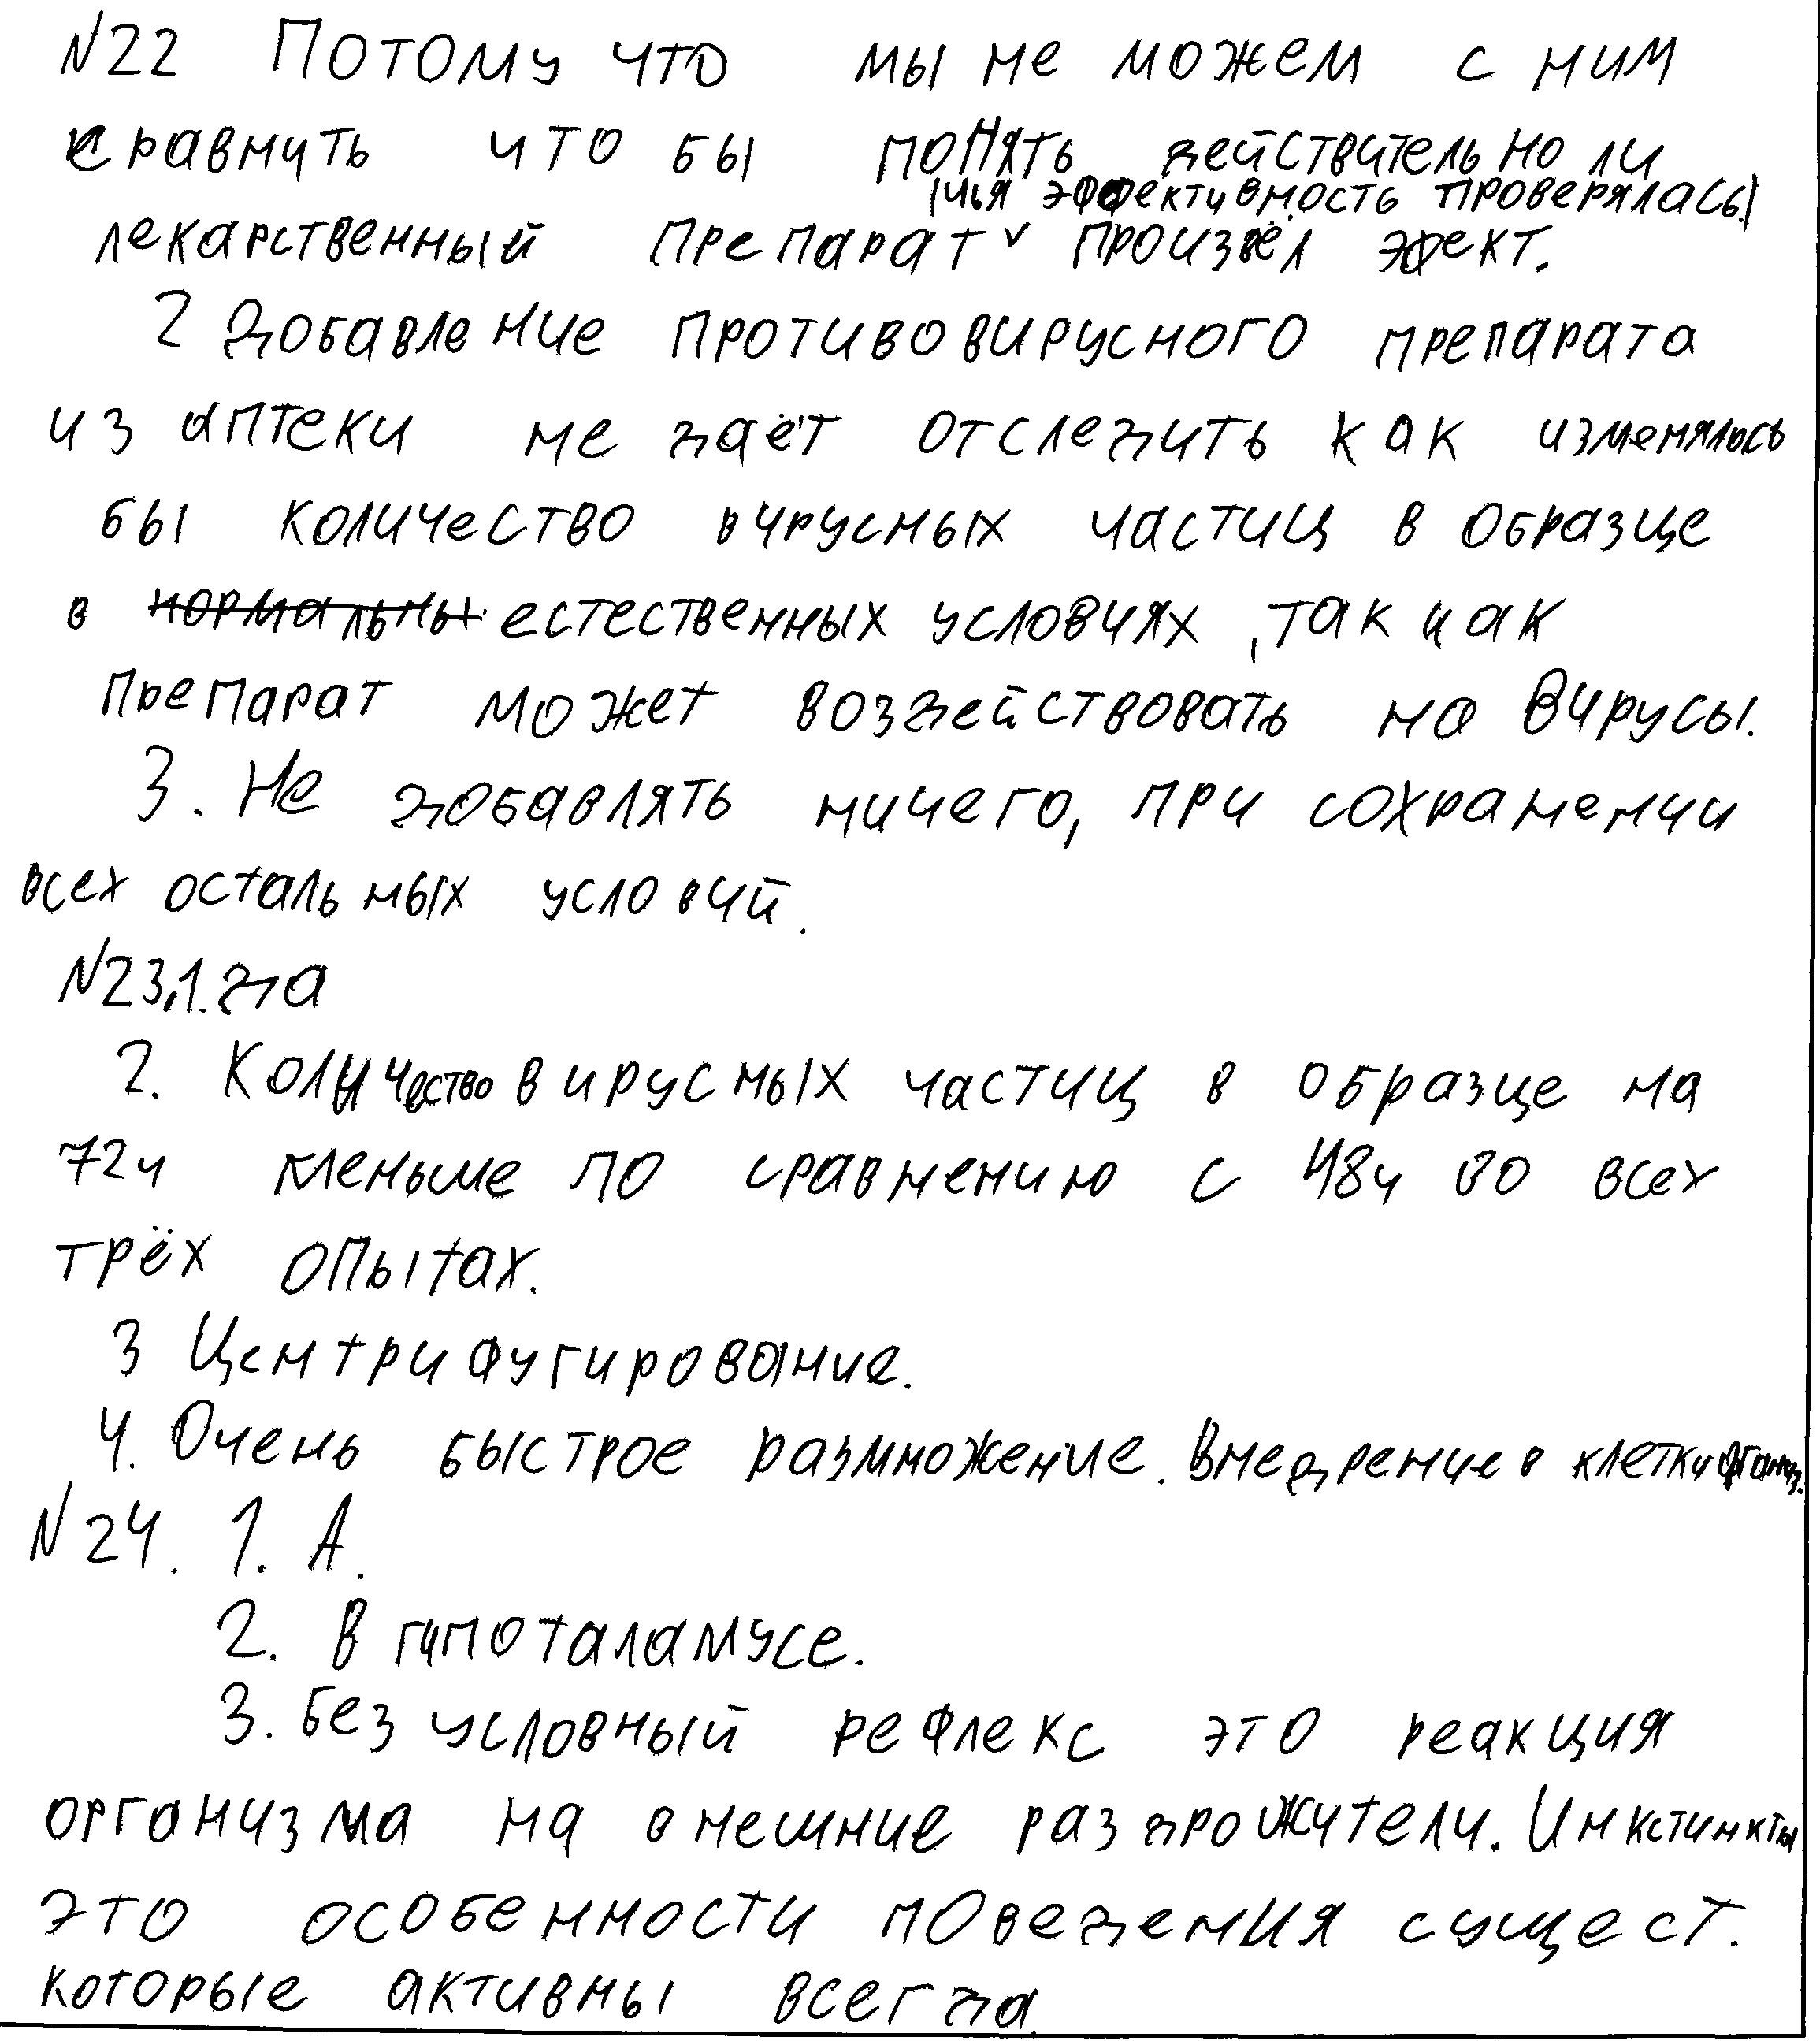 №22 Потому что мы не можем с ним
сравнить что бы понять действительно ли
(чья эффективность проверялась)
лекарственный препарат ˅ произвёл эфект.
2 Добавление противовирусного препарата
из аптеки не даёт отследить как изменялось
бы количество вирусных частиц в образце
в нормальных естественных условиях, так как
препарат может воздействовать на вирусы.
3. Не добавлять ничего, при сохранении
всех остальных условий.
№23, 1. да
2. Количество вирусных частиц в образце на
72ч меньше по сравнению с 48ч во всех
трёх опытах.
3 Центрифугирование.
4. Очень быстрое размножение. Внедрение в клетки организ.
№24. 1. А.
2. В гипоталамусе.
3. Безусловный рефлекс это реакция
организма на внешние раздрожители. Инкстинкты
это особенности поведения сущест.
которые активны всегда.